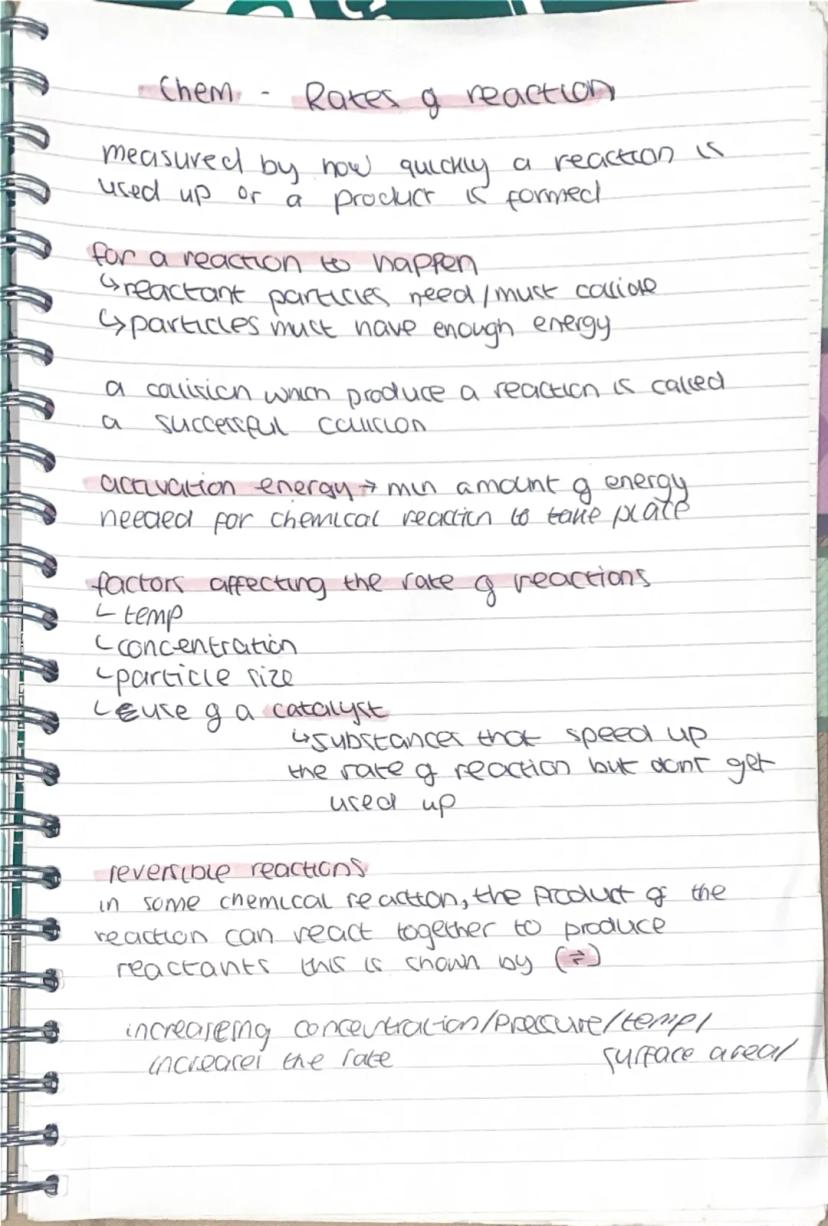 Chem - Rates of reaction
measured by how quickly a reaction is
used up or a product is formed
for a reaction to happen
↳reactant particles need/must collide
↳particles must have enough energy
a collision which produce a reaction is called
a successful collision
activation energy → min amount of energy
needed for chemical reaction to take place
factors affecting the rate of reactions
↳temp
↳concentration
↳particle size
↳use of a catalyst
↳substances that speed up
the rate of reaction but dont get
used up
reversible reactions
in some chemical reaction, the product of the
reaction can react together to produce
reactants this is shown by (⇌)
increasing concentration/pressure/temp/
surface area/
increases the rate